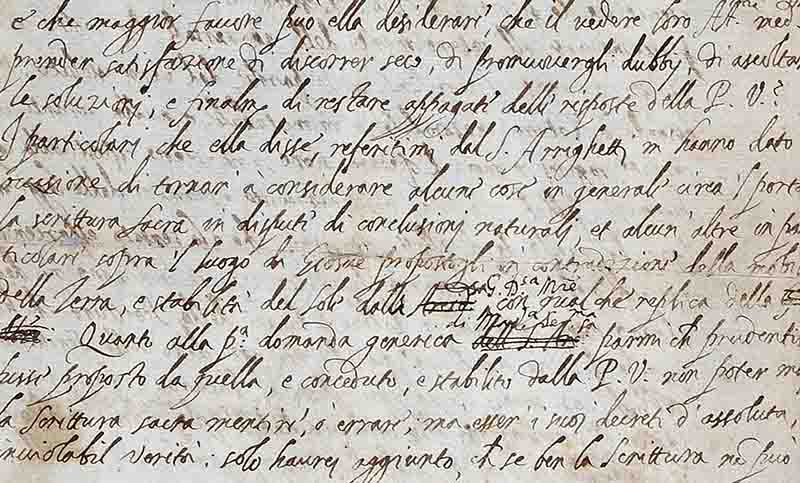 e che maggior favore può ella desiderare, che il vedere loro Al.
prender satisfazione di discorrer seco, di promuovergli dubbij, di ascoltar
le soluzioni, e finalm. di restare appagati delle risposte della P. V.?
I particolari che ella disse, referitimi dal S. Arrighetti, m hanno dato
occasione di tornar' à considerare alcune cose in generale circa 'l porta
la scrittura sacra in dispute di conclusioni naturali, et alcun' altre in par
ticolare sopra 'l luogo di Giosuè propostogli in contradizione della mobil
della Terra, e stabilità del Sole dalla con qualche replica della
Quanto alla p.ª domanda generica di Mad.ª Ser.ma parmi ch prudentis
fusse proposto da quella, e conceduto, e stabilito dalla P. V. non poter ma
la Scrittura sacra mentire, ò errare, ma esser' i suoi decreti d' assoluta,
inviolabil verità: solo haurei aggiunto, ch se ben la Scrittura può